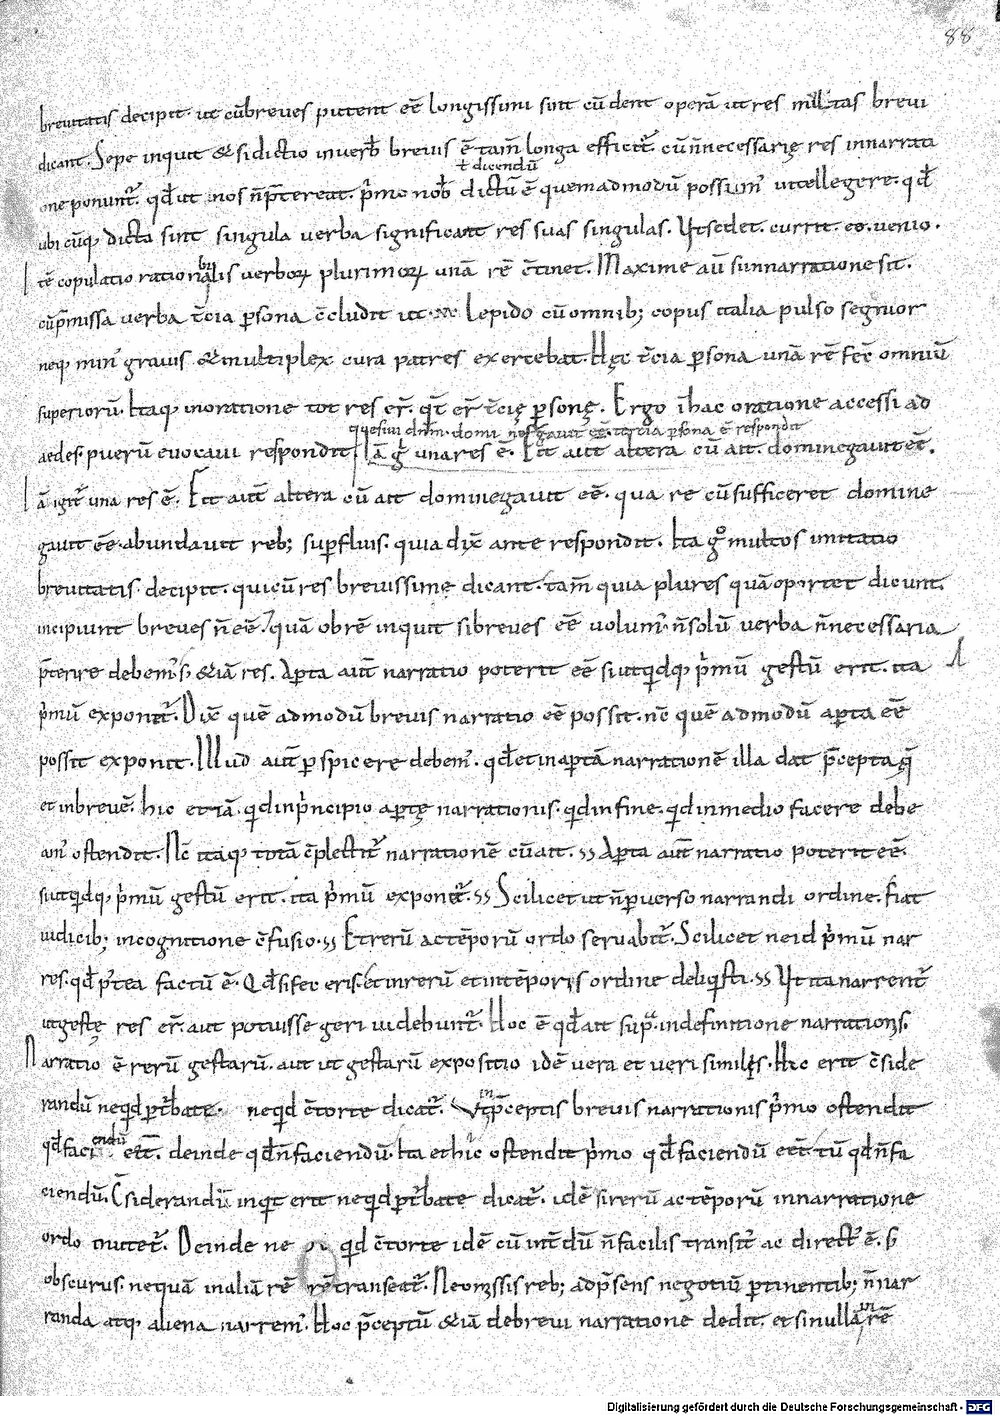 88
breuitatis decipit. ut cū breues putent eē longissimi sint cū dent operā ut res multas breui
dicant. Sepe inquit & si dictio in uerb̄ breuis ē tam̄ longa efficit̄. cū n̄ necessarię res in narrati
ł dicendū
one ponunt̄. qđ ut nos n̄ p̄tereat. p̄mo nob̄ dictū ē quemadmodū possim᾽ intellegere. qđ
ubi cūq; dicta sint singula uerba significant res suas singulas. Ut sedet. currit. eo. uenio.
Itē copulatio rationabilis uerborꝝ plurimorꝝ unā rē c̄tinet. Maxime aū si in narratione sit.
cū p̄missa uerba t̄cia ꝑsona c̄cludit ut Lepido cū omnib; copus italia pulso segnior
neq; min᾽ grauis & multiplex cura patres exercebat. Hęc t̄cia ꝑsona unā rē fec̄ omniū
superiorū. Itaq; in oratione tot res er̄. qt̄ er̄ t̄cię ꝑsonę. Ergo in hac oratione accessi ad
quesiui dn̄m. domi negauit eē. tertia ꝑsona ē respondit
aedes. puerū euocaui respondit. Iā g̊ una res ē. Et aut̄ altera cū ait. domi negauit eē.
Iā igit̄ una res ē. Et aut̄ altera cū ait domi negauit eē. qua re cū sufficeret domi ne
gauit eē. abundauit reb; suꝑfluis. quia dix̄ ante respondit. Ita g̊ multos imitatio
breuitatis decipit. qui cū res breuissime dicant. tam̄ quia plures quā oportet dicunt.
incipiunt breues n̄ eē. quā obrē inquit si breues eē uolum᾽. n̄ solū uerba n̄ necessaria
p̄terire debem᾽ s; & iā res. Aꝑta aut̄ narratio poterit eē si ut qdq; p̄mū gestū erit. ita
p̄mū exponet̄. Dix̄ quē admodū breuis narratio eē possit. nc̄ quē admodū aꝑta eē
possit exponit. Illud aut̄ ꝑspicere debem᾽. qđ et in aꝑtā narrationē illa dat p̄cepta q̄
et in breuē. hic et iā. qd in p̄ncipio aꝑtę narrationis. qd in fine. qd in medio facere debe
am᾽ ostendit. Nc̄ itaq; totā c̄plectit̄ narrationē cū ait. Aꝑta aut̄ narratio poterit eē.
si ut qdq; p̄mū gestū erit. ita p̄mū exponet̄. Scilicet ut n̄ ꝑuerso narrandi ordine. fiat
iudicib; in cognitione c̄fusio. Et rerū ac tēporū ordo seruabit̄. Scilicet ne id p̄mū nar
res. qđ p᾽tea factū ē. Qđ si fec eris. et in rerū et in tēporis ordine deliqisti. Ut ita narrent̄
ut gestę res er̄. aut potuisse geri uidebunt̄. Hoc ē qđ ait sup̄. in definitione narrationis.
Narratio ē rerū gestarū. aut ut gestarū expositio idē uera et ueri similis. Hic erit c̄side
randū ne qd ꝑt̄bate. ne qd c̄torte dicat̄. Ut in p̄ceptis breuis narrationis p̄mo ostendit
qđ faciendū eēt. deinde qđ n̄ faciendū. Ita et hic ostendit p̄mo qđ faciendū eēt tū qđ n̄ fa
ciendū. C̄siderandū inqt erit ne qd ꝑt̄bate dicat̄. idē si rerū ac tēporū in narratione
ordo mutet̄. Deinde ne qd c̄torte idē cū int̄dū n̄ facilis transit᾽ ac direct᾽ ē. s;
obscurus. ne quā in aliā rē transeat̄. Ne omissis reb; ad p̄sens negotiū ꝑtinentib; n̄ nar
randa atq; aliena narrem᾽. Hoc p̄ceptū & iā de breui narratione dedit. et si in nullā rē
Digitalisierung gefördert durch die Deutsche Forschungsgemeinschaft - DFG